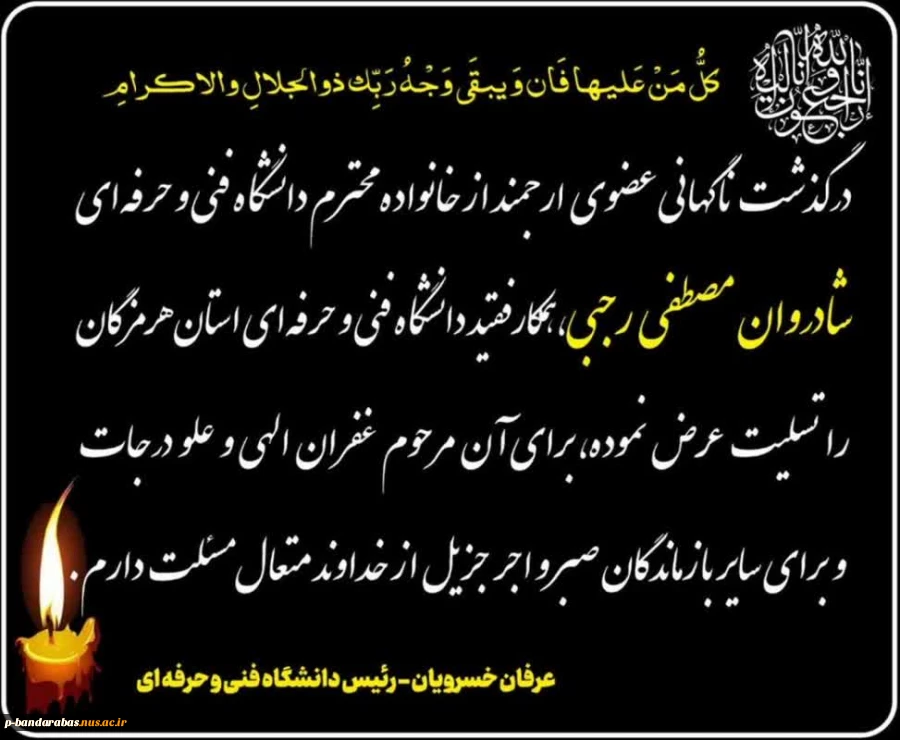 إنا لله وإنا إليه راجعون
كُلُّ مَنْ عَلیها فَان وَ یبقَی وَجْهُ رَبِّك ذوالجلالِ والاکرامِ
درگذشت ناگهانی عضوی ارجمند از خانواده محترم دانشگاه فنی و حرفه ای
شادروان مصطفی رجبی، همکار فقید دانشگاه فنی و حرفه ای استان هرمزگان
را تسلیت عرض نموده، برای آن مرحوم غفران الهی و علو درجات
و برای سایر بازماندگان صبر و اجر جزیل از خداوند متعال مسئلت دارم.
عرفان خسرویان - رئیس دانشگاه فنی و حرفه ای
p-bandarabas.nus.ac.ir